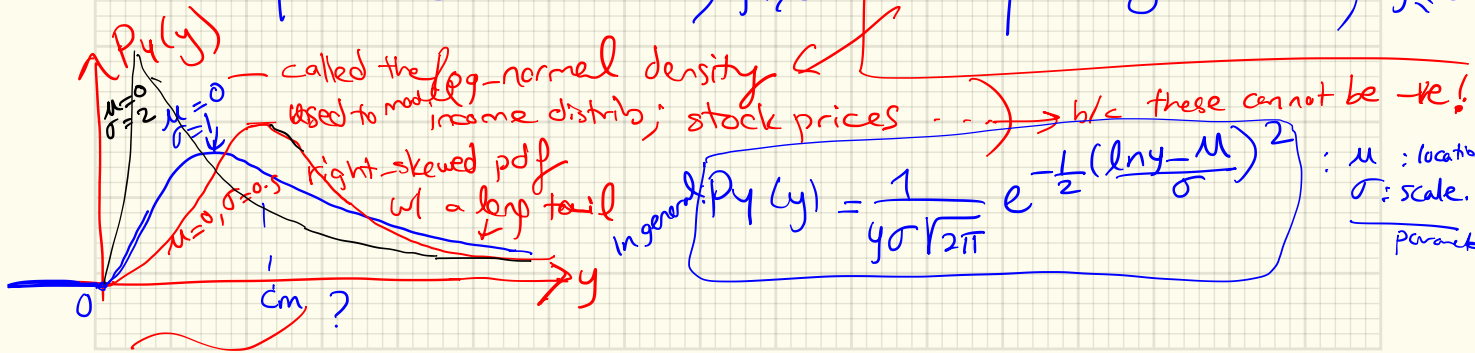 Py(y)
— called the log-normal density
used to model income distrib; stock prices ... → b/c these cannot be -ve!
μ=0
σ=2
μ=0
σ=1
right-skewed pdf
w/ a long tail
μ=0, σ=0.5
In general: Py(y) = 1/(yσ√2π) e^{-1/2 ((lny-μ)/σ)^2} : μ : locatio
σ : scale.
paramet
y
0
Cm ?